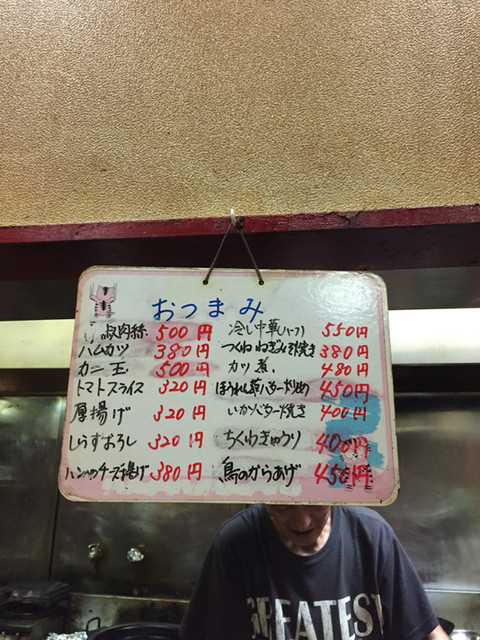 おつまみ
叔肉絲 500円
ハムカツ 380円
カニ玉 500円
トマトスライス 320円
厚揚げ 320円
しらすおろし 320円
チーズ揚げ 380円
冷し中華(ハーフ) 550円
つくねねぎみそ焼き 380円
カツ煮 480円
ほうれん草バター炒め 450円
いかバター焼き 400円
ちくわきゅうり 400円
鳥のからあげ 450円
GREATEST